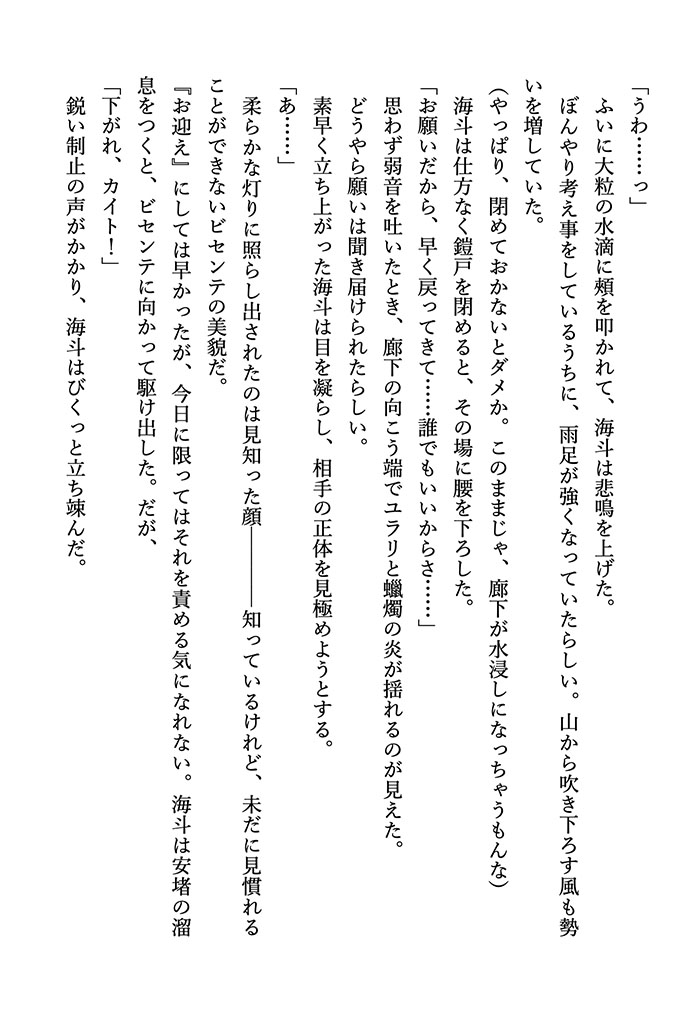 「うわ……っ」
ふいに大粒の水滴に頰を叩かれて、海斗は悲鳴を上げた。
ぼんやり考え事をしているうちに、雨足が強くなっていたらしい。山から吹き下ろす風も勢
いを増していた。
（やっぱり、閉めておかないとダメか。このままじゃ、廊下が水浸しになっちゃうもんな）
海斗は仕方なく鎧戸を閉めると、その場に腰を下ろした。
「お願いだから、早く戻ってきて……誰でもいいからさ……」
思わず弱音を吐いたとき、廊下の向こう端でユラリと蠟燭の炎が揺れるのが見えた。
どうやら願いは聞き届けられたらしい。
素早く立ち上がった海斗は目を凝らし、相手の正体を見極めようとする。
「あ……」
柔らかな灯りに照らし出されたのは見知った顔――知っているけれど、未だに見慣れる
ことができないビセンテの美貌だ。
『お迎え』にしては早かったが、今日に限ってはそれを責める気になれない。海斗は安堵の溜
息をつくと、ビセンテに向かって駆け出した。だが、
「下がれ、カイト！」
鋭い制止の声がかかり、海斗はびくっと立ち竦んだ。